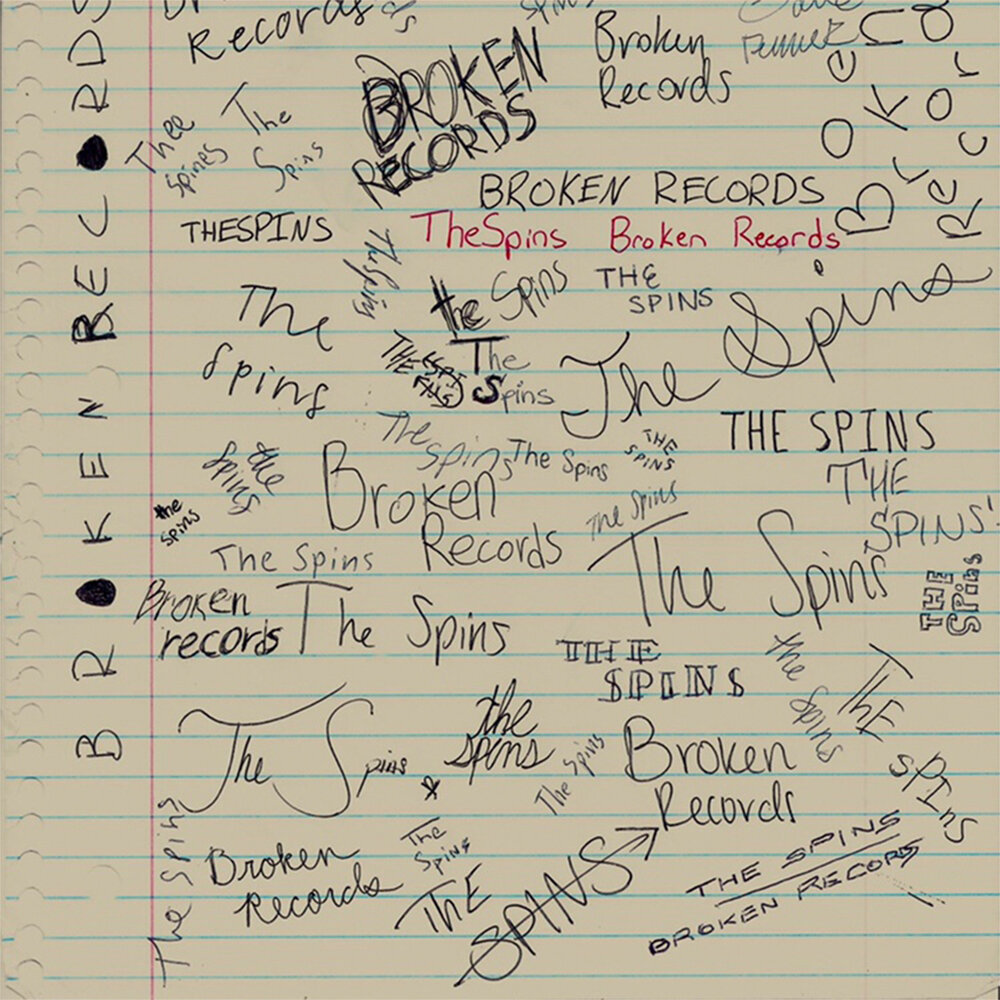 Records
BROKEN
RECORDS
Broken
Records
Broken
Records
BROKEN RECORDS
Thee
Spines
The
Spins
BROKEN RECORDS
THESPINS
TheSpins Broken Records
TheSpins
the Spins
THE
SPINS
The Spins
The
Spins
The
Spins
The Spins
THE SPINS
The
Spins
The Spins
THE
SPINS
THE
SPINS'
the
Spins
Broken
Records
the
spins
The Spins
The Spins
The Spins
THE
SPins
Broken
records
The Spins
THE
SPINS
the
Spins
THE
SPINS
The Spins
the
spins
The Spins
Broken
Records
The Spins
Broken
Records
The
Spins
THE
SPINS
THE SPINS
BROKEN RECORDS